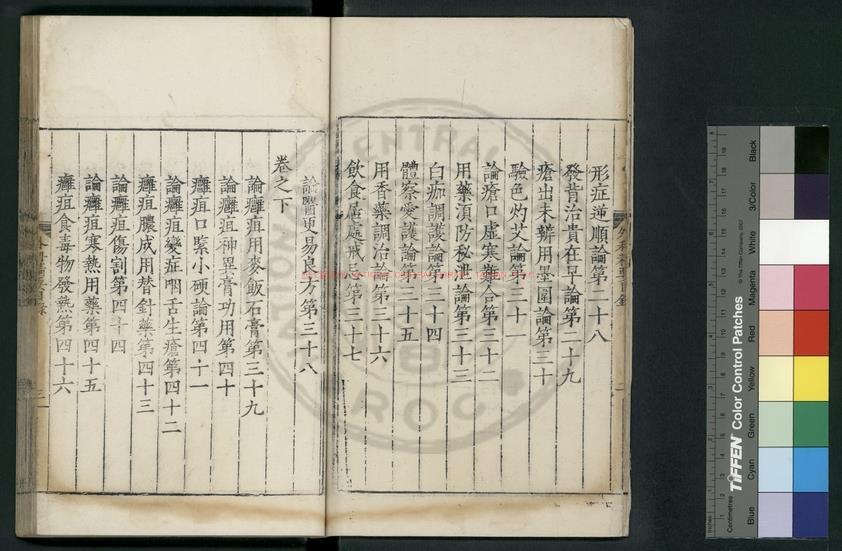 形症逆順論第二十八
發背治貴在早論第二十九
瘡出未辨用墨圍論第三十
驗色灼艾論第三十一
論瘡口虛寒難合第三十二
用藥湏防秘泄論第三十三
白痂調護論第三十四
體察愛護論第三十五
用香藥調治論第三十六
飲食居處戒忌第三十七
論醫更易良方第三十八
卷之下
論癰疽用麥飯石膏第三十九
論癰疽神異膏功用第四十
癰疽口緊小硬論第四十一
論癰疽變症咽舌生瘡第四十二
癰疽膿成用替針藥第四十三
論癰疽傷割第四十四
論癰疽寒熱用藥第四十五
癰疽食毒物發熱第四十六
CENTRAL
ROC
TIFFEN Color Control Patches
© The Tiffen Company, 2007
Blue
Cyan
Green
Yellow
Red
Magenta
White
3/Color
Black
Inches
Centimetres